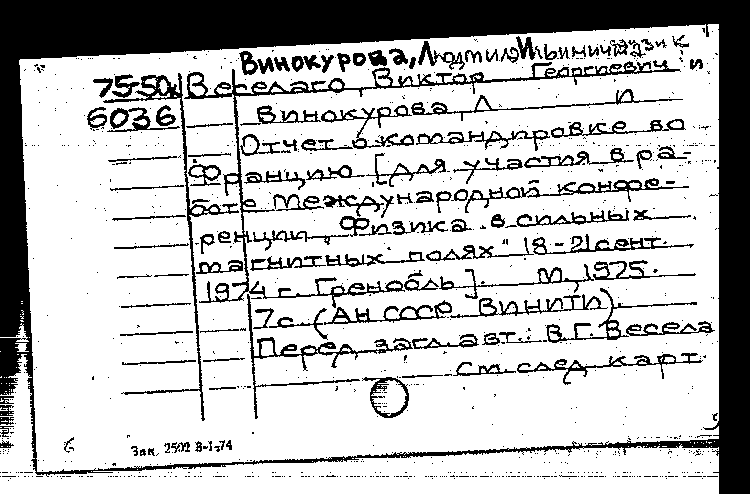 Винокурова, Людмила Ильинична физик
75-50к Веселаго, Виктор Георгиевич и
6036 Винокурова, Л И
Отчет о командировке во
Францию [для участия в ра-
боте международной конфе-
ренции „Физика в сильных
магнитных полях" 18-21 сент.
1974 г. Гренобль]. М, 1975.
7с. (АН СССР. ВИНИТИ).
Перед загл. авт.: В.Г. Весела
См. след. карт.
6 Зак. 2502 8-I-74